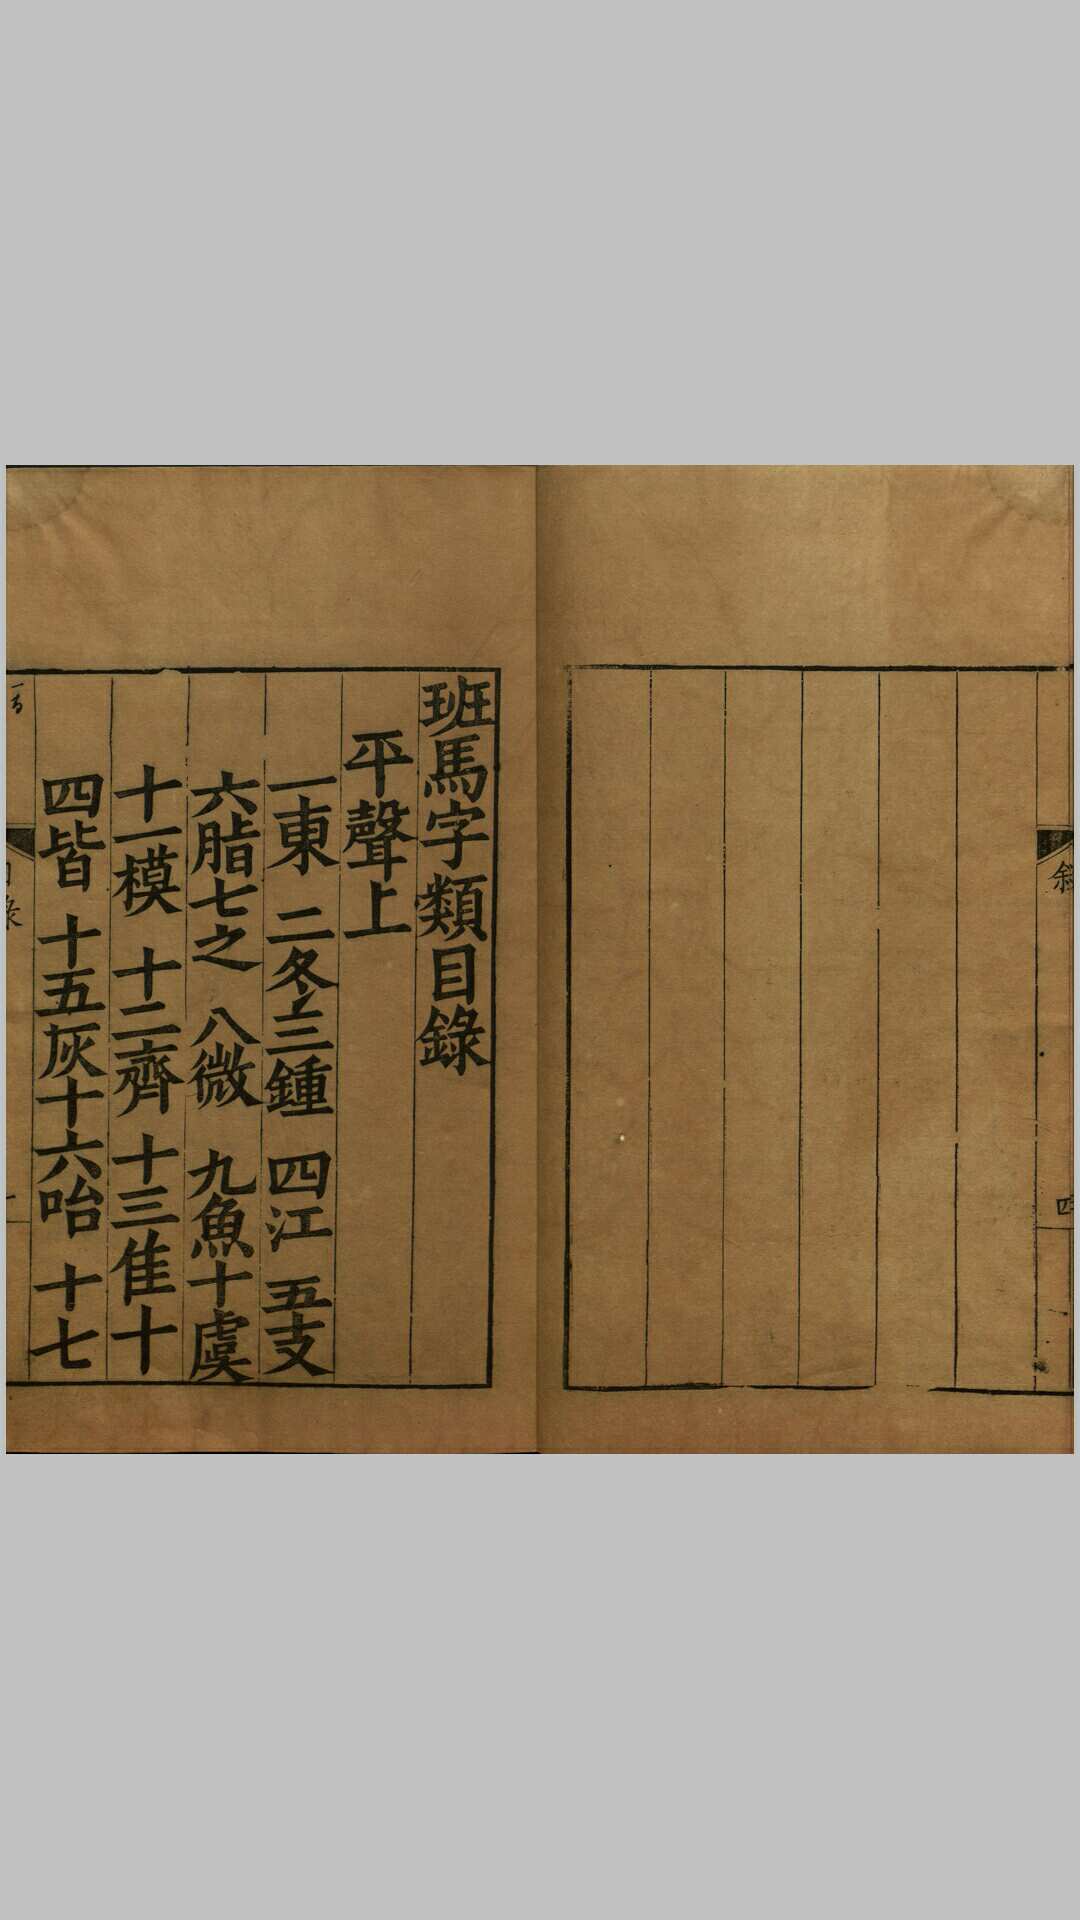 四
班馬字類目錄
平聲上
一東 二冬三鍾 四江 五支
六脂七之 八微 九魚十虞
十一模 十二齊 十三佳十
四皆 十五灰十六咍 十七